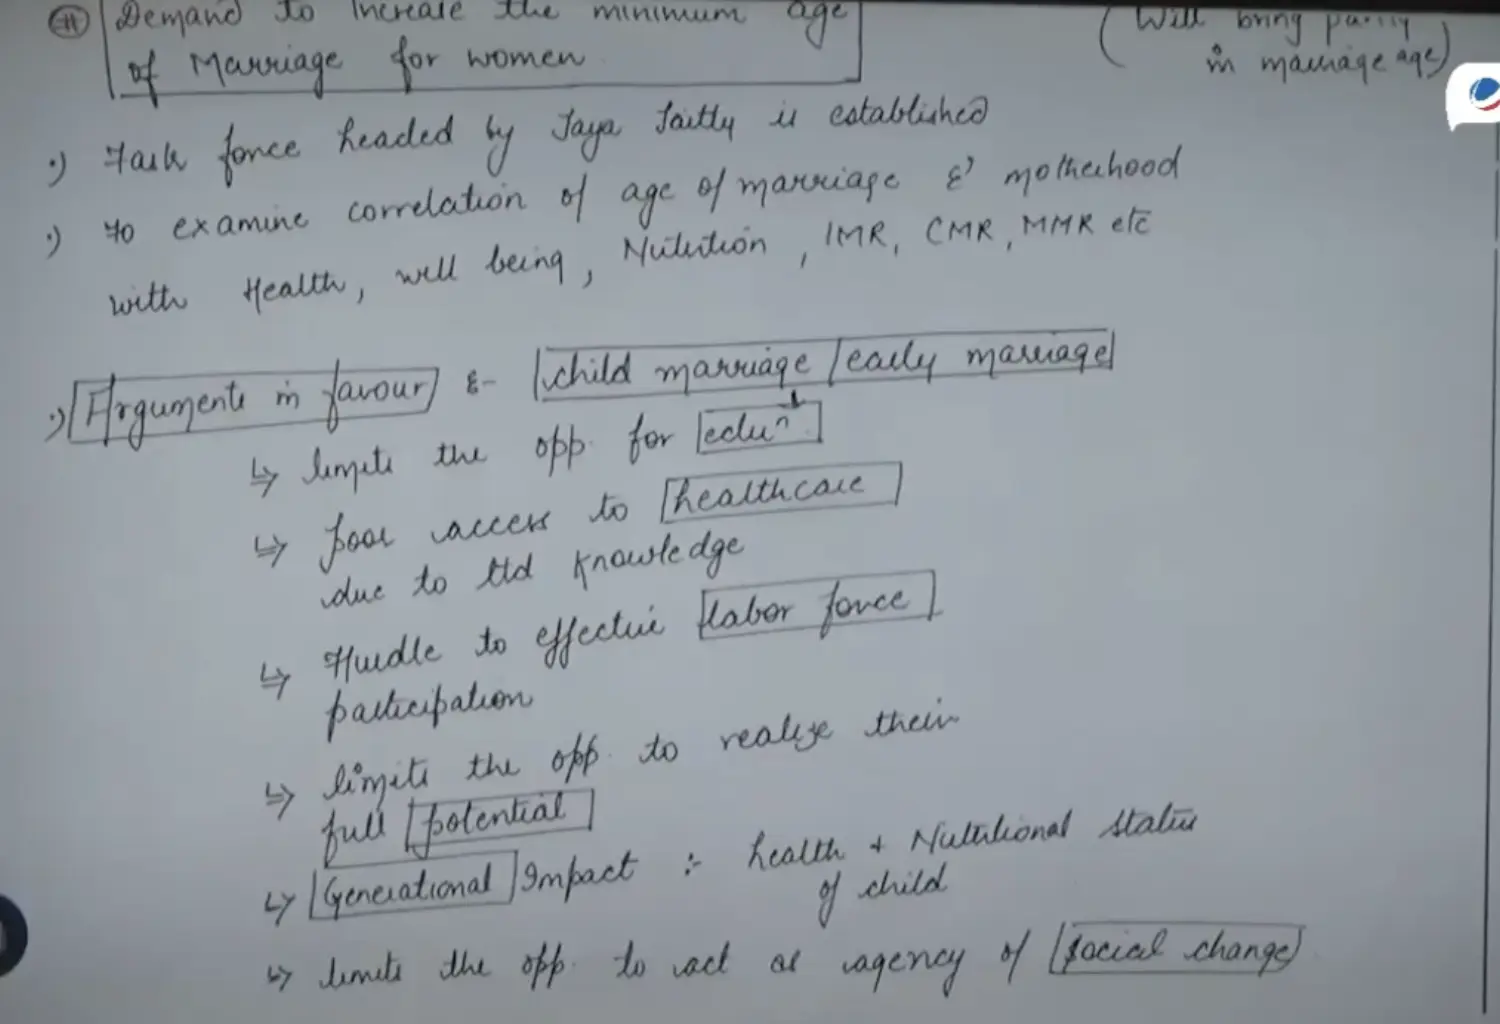 (#) Demand to Increase the minimum age
of Marriage for women
(Will bring parity
in marriage age)
•) Task force headed by Jaya Jaitly is established
•) To examine correlation of age of marriage & motherhood
with Health, well being, Nutrition, IMR, CMR, MMR etc
•) Arguments in favour :- child marriage / early marriage
↳ limits the opp. for eduⁿ
↳ Poor access to healthcare
due to ltd knowledge
↳ Hurdle to effective labor force
participation
↳ limits the opp. to realize their
full potential
↳ Generational Impact :- health + Nutritional status
of child
↳ limits the opp. to act as agency of social change